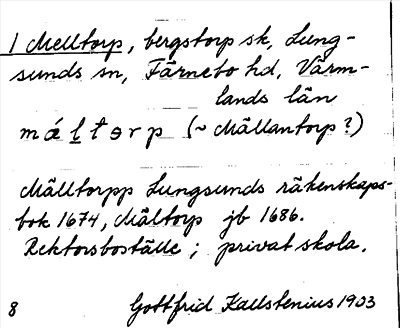 1 Melltorp, bergstorp sk, Lung-
sunds sn, Färnebo hd, Värm-
lands län
mǽltorp (~ Mällantorp?)
Mälltorpp Lungsunds räkenskaps-
bok 1674, Mältorp jb 1686.
Rektorsboställe; privat skola.
8 Gottfrid Kallstenius 1903